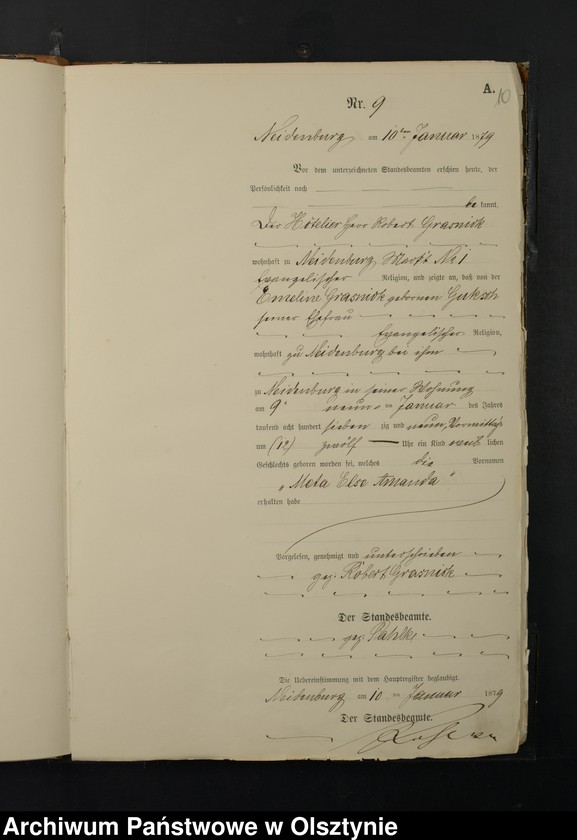 A.
10
Nr. 9
Neidenburg am 10ten Januar 1879
Vor dem unterzeichneten Standesbeamten erschien heute, der
Persönlichkeit nach
be kannt,
Der Hôtelier Herr Robert Grasnick
wohnhaft zu Neidenburg Markt No 1
Evangelischer Religion, und zeigte an, daß von der
Emeline Grasnick gebornen Guksch
seiner Ehefrau
Evangelischer Religion,
wohnhaft zu Neidenburg bei ihm
zu Neidenburg in seiner Wohnung
am 9 neun ten Januar des Jahres
tausend acht hundert sieben zig und neun, Vormittags
um (12) zwölf Uhr ein Kind weib lichen
Geschlechts geboren worden sei, welches die Vornamen
„Meta Else Amanda"
erhalten habe
Vorgelesen, genehmigt und unterschrieben
gez. Robert Grasnick
Der Standesbeamte.
gez. Pahlke
Die Uebereinstimmung mit dem Hauptregister beglaubigt.
Neidenburg am 10 ten Januar 1879
Der Standesbeamte.
Archiwum Państwowe w Olsztynie